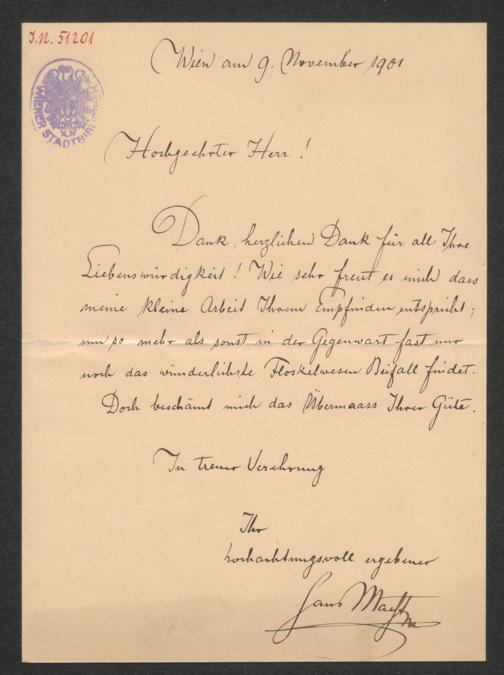 I.N. 51201
WIENER STADTBIBLIOTHEK
Wien am 9. November 1901
Hochgeehrter Herr!
Dank, herzlichen Dank für all Ihre
Liebenswürdigkeit! Wie sehr freut es mich dass
meine kleine Arbeit Ihrem Empfinden entspricht;
um so mehr als sonst in der Gegenwart fast nur
noch das wunderlichste Floskelwesen Beifall findet.
Doch beschämt mich das Übermaass Ihrer Güte.
In treuer Verehrung
Ihr
hochachtungsvoll ergebener
Hans